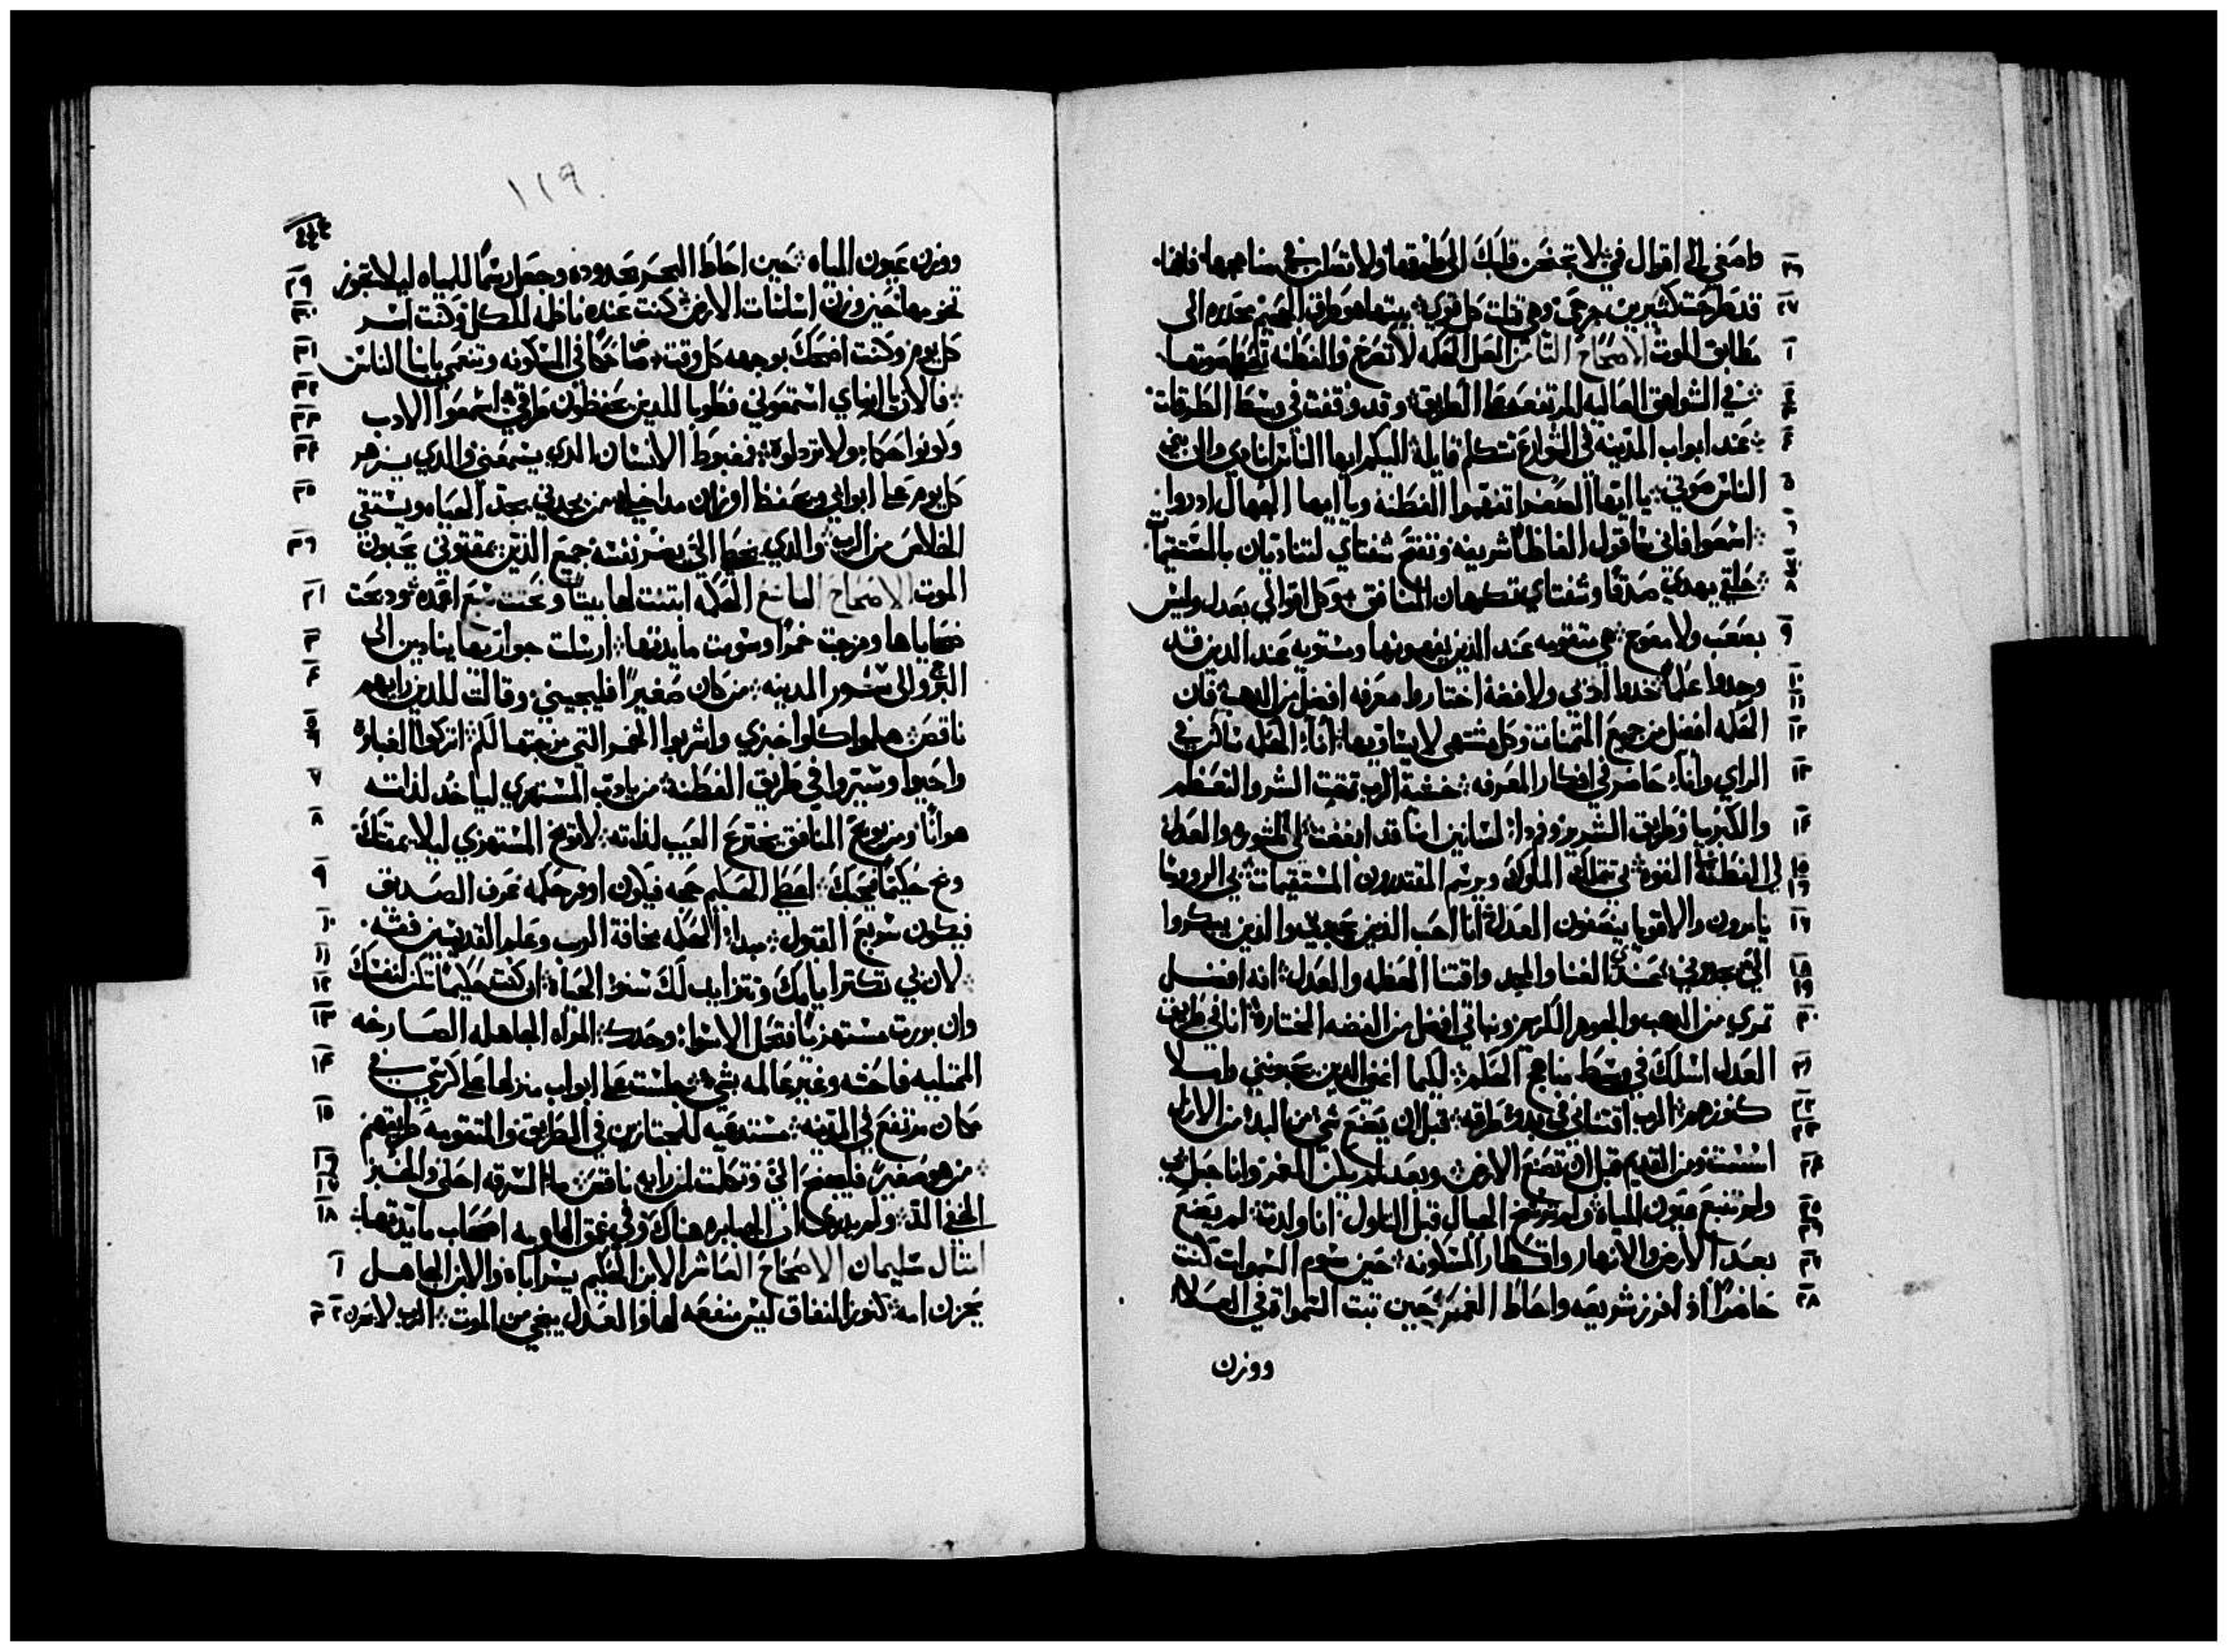 واصغي الى اقوال في لا تخضعن قلبك الى طرقها ولا تضل في مناهجها فانها
قد طرحت كثيرين جرحى وهي قتلت كل قوي بيتها هو طرق الجحيم محدره الى
مطابق الموت الاصحاح الثامن العل الحكمه لا تصرخ والفطنه تعطي صوتها
في الشواهق العاليه المرتفعه على الطريق وقد وقفت في وسط الطرقات
عند ابواب المدينه في الشوارع تتكلم قايلة اليكم ايها الناس انادي والى بني
الناس صوتي يا ايها الضعفا تفهموا الفطنة ويا ايها الجهال ادروا
اسمعوا فاني ساقول الفاظا شريفه وتفتح شفتاي لتناديان بالمستقيمات
حلقي يهدي صدقا وشفتاي تكرهان المنافق كل اقوالي بعدل وليس
بصعب ولا معوج هي متقومه عند الذين يفهمونها ومستويه عند الذين قد
وجدوا علما خدوا ادبي ولا فضة اختاروا معرفه افضل من الدهب فان
الحكمه افضل من جميع المتمنات وكل مشتهى لا يساويها انا الحكمه ساكن في
الراي وانا حاضر في افكار المعرفه خشية الرب تمقت الشر والتعظم
والكبريا وطريق الشرير وفم ذا لسانين انا قد ابغضت لي المشوره والعدل
لي الفطنة القوة بي تتملك الملوك ويرسم المقتدرون المستقيمات بي الرووسا
يامرون والاقويا يقضون العدل انا احب الذين يحبوني والذين يبكروا
الي يجدوني عندي الغنا والمجد واقتنا العظمه والعدل انه افضل
ثمري من الدهب والجوهر الكريم ونباتي افضل من الفضه المختارة انا في طريق
العدل اسلك في وسط مناهج الحكم لكيما اغني الدين يحبونني واملا
كنوزهم الرب اقتناني في بدو طرقه قبل ان يصنع شي من البد من الازل
اسست ومن القديم قبل ان تصنع الارض وبعد لم يكن الغمر وانا حبل بي
ولم تنبع عيون المياة ولم ترسخ الجبال قبل التلول انا ولدت لم يصنع
بعد الارض والانهار واقطار المسكونه حين رسم السموات كنت
حاضرا اذ افرز شريعه واحاط الغمر حين تبت السموات في العلا
ووزن
١١٩
ووزن عيون المياه حين احاط البحر بحدوده وجعل رسما للمياه ليلا تجوز
تخومها حين وزن اساسات الارض كنت عنده ناظمه للكل وكنت اسر
كل يوم وكنت اضحك بوجهه كل وقت ضاحكا في المسكونه وتنعمي بابنا الناس
فالان يا ابناي استمعوني فطوبا للدين يحفظون طرقي اسمعوا الادب
وكونوا حكما ولا ترذلوة فمغبوط الانسان الدي يسمعني والدي يسهر
كل يوم على ابوابي ويحفظ اوزان مداخلي من يجدني يجد الحياه ويستقي
الخلاص من الرب والدي يخطا الي يضر نفسه جميع الذين يمقتوني يحبون
الموت الاصحاح التاسع الحكمه ابتنت لها بيتا ونحتت سبع اعمده ودبحت
ضحاياها ومزجت خمرا وسوت مايدتها ارسلت جواريها ينادين الى
البرج والى سور المدينه من كان صغيرا فليجيني وقالت للدين رايهم
ناقص هلموا كلوا خبزي واشربوا الخمر التي مزجتها لكم اتركوا الغباوه
واحيوا وسيروا في طريق الفطنة من يادب المستهزي لياخد لذاته
هوانا ومن يوبخ المنافق يخترع العيب لذاته لا توبخ المستهزي ليلا يمقتك
وبخ حكيما يحبك اعطي الحكيم حجه فيكون اوفر حكمه عرف الصديق
فيكون سريع القبول مبدا الحكمه مخافة الرب وعلم القديسين فهمه
لان بي تكثر ايامك وتتزايد لك سنوا الحياة ان كنت حكيما تكن لنفسك
وان برزت مستهزيا فتحمل الاسوا وحدك المراه الجاهله الصارخه
الممتليه فاحشه وغير عالمه بشي جلست على ابواب منزلها على كرسي في
مكان مرتفع في المدينه مستدعيه للمجتازين في الطريق والمتقومه طريقهم
من هو صغير فليجنح الي وتكلمت لمن رايه ناقص ما السرقه احلى والخبز
المخفي الذ ولم يدري ان الجبابره هناك وفي عمق الهاويه اصحاب مايدتها
امثال سليمان الاصحاح العاشر الابن الحكيم يسر اباه والابن الجاهل
يحزن امه كنوز النفاق ليس منفعه لها والعدل ينجي من الموت الرب لا يحزن